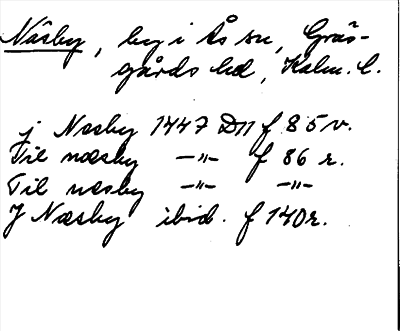 Näsby, by i Ås sn, Gräs-
gårds hd, Kalm. l.
j Næsby 1447 D11 f 85 v.
Til næsby —"— f 86 r.
Til næsby —"— —"—
J Næsby ibid. f 140r.